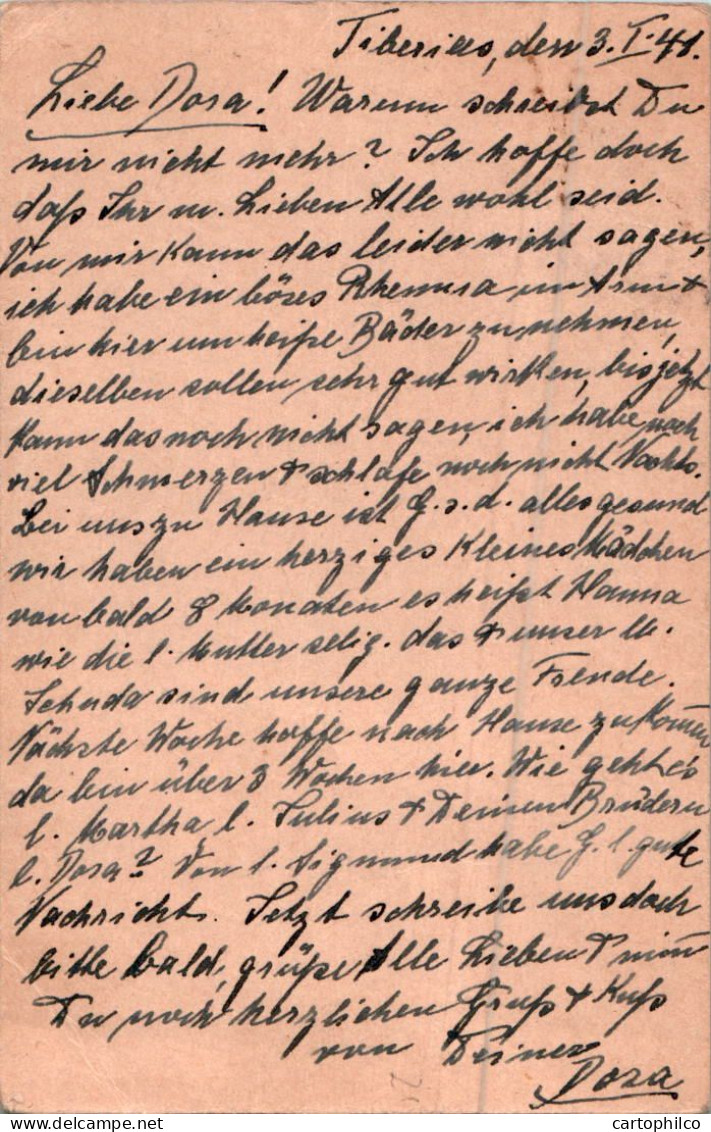 Tiberias, den 3.I.41.
Liebe Dora! Warum schreibst Du
mir nicht mehr? Ich hoffe doch
daß Ihr m. Lieben Alle wohl seid.
Von mir kann das leider nicht sagen,
ich habe ein böses Rheuma im Arm +
bin hier um heiße Bäder zu nehmen,
dieselben sollen sehr gut wirken, bis jetzt
kann das noch nicht sagen, ich habe noch
viel Schmerzen + schlafe noch nicht Nachts.
Bei uns zu Hause ist G.s.d. alles gesund
wir haben ein herziges kleines Mädchen
von bald 8 Monaten es heißt Hanna
wie die l. Mutter selig. das + unser lb.
Jehuda sind unsere ganze Freude.
Nächste Woche hoffe nach Hause zu kommen
da bin über 3 Wochen hier. Wie geht es
l. Martha l. Julius + Deinen Brüdern
l. Dora? Von l. Sigmund habe G. l. gute
Nachricht. Jetzt schreibe uns doch
bitte bald, grüße Alle Lieben + nimm
Du noch herzlichen Gruß + Kuß
von Deiner
Dora
cartophilco